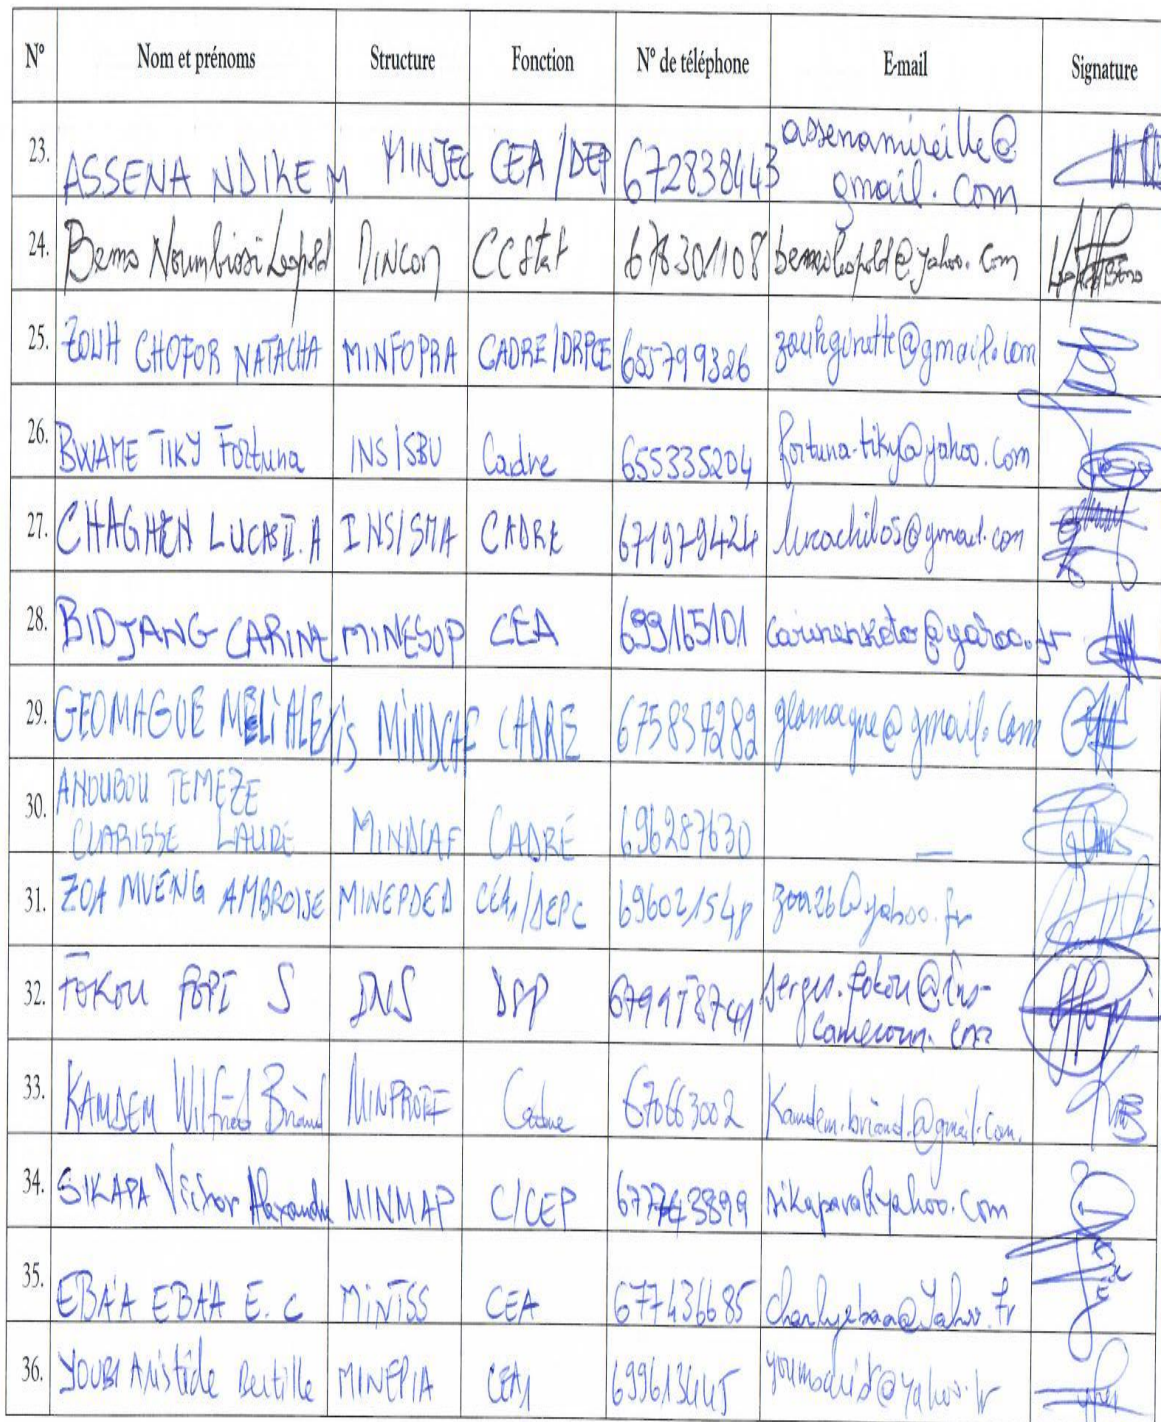 N° Nom et prénoms Structure Fonction N° de téléphone E-mail Signature
23. ASSENA NDIKEM MINJEC CEA/DEP 672838443 assenamireille@
gmail.com
24. Bemo Noumbissi Leopold CCstat 678301108 bemoleopold@yahoo.com
25. ZOUH CHOFOR NATACHA MINFOPRA CADRE/DRPCE 655799326 zouhginette@gmail.com
26. BWAME TIKY Fortuna INS/SBU Cadre 655335204 fortuna-tiky@yahoo.com
27. CHAGHEN LUCAS II. A INS/SMA CADRE 671979424 lucachilos@gmail.com
28. BIDJANG CARINE MINESUP CEA 699165101
29. GEOMAGUE MELI ALEXis MINDCAF CADRE 675837282 geomague@gmail.com
30. ANOUBOU TEMEZE
CLARISSE LAURE MINDCAF CADRE 696287630 —
31. ZOA MVENG AMBROISE MINEPDED CEA1/DEPC 696021548 zoa26@yahoo.fr
32. FOKOU POPI S INS DSP serges.fokou@ins-
cameroun.
33. KAMDEM Wilfried Briand MINPROFF Cadre 670663002 Kamdem.briand.@gmail.com.
34. SIKAPA Victor Alexandre MINMAP C/CEP sikapava@yahoo.com
35. EBA'A EBA'A E. C MINTSS CEA 677436685 charlyebaa@Yahoo.fr
36. YOUBI Aristide MINEPIA CEA1 699613445